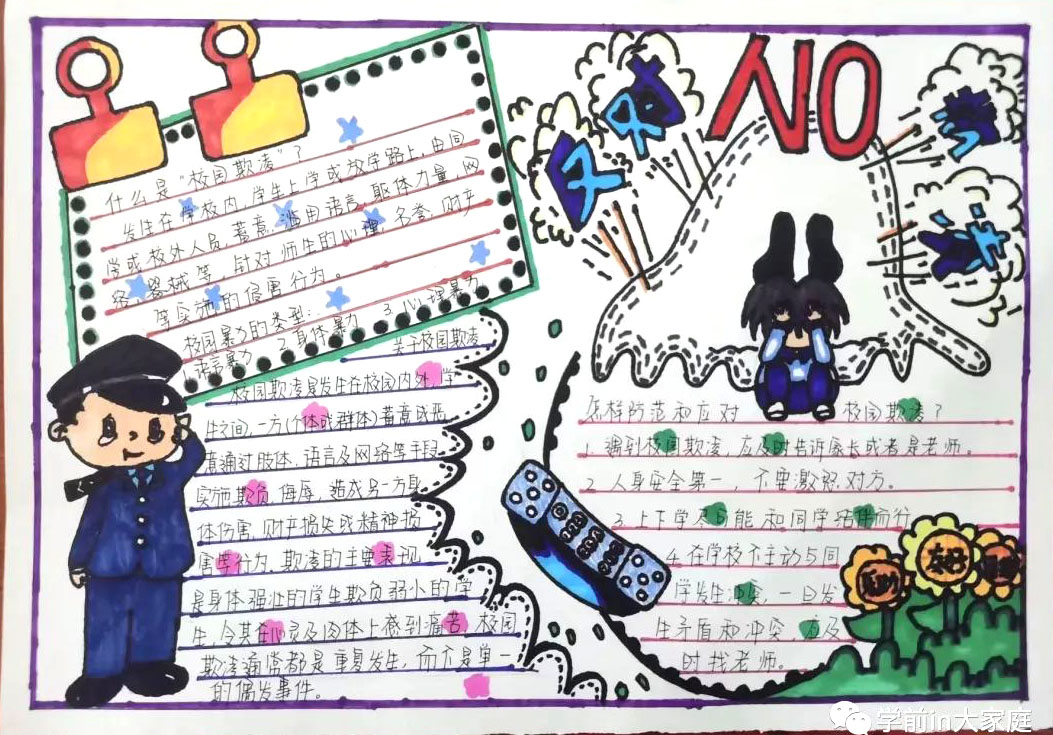 什么是"校园欺凌"？
发生在学校内，学生上学或放学路上，由同
学或校外人员，蓄意，滥用语言，躯体力量，网
络，器械等，针对师生的心理，名誉，财产
等实施的侵害行为。
校园暴力的类型：
1.语言暴力 2.身体暴力 3.心理暴力
关于校园欺凌
校园欺凌是发生在校园内外，学
生之间，一方(个体或群体)蓄意或恶
意通过肢体、语言及网络等手段
实施欺负、侮辱，造成另一方身
体伤害、财产损失或精神损
害等行为。欺凌的主要表现
是身体强壮的学生欺负弱小的学
生，令其在心灵及肉体上感到痛苦。校园
欺凌通常都是重复发生，而不是单一
的偶发事件。
NO
怎样防范和应对校园欺凌？
1.遇到校园欺凌，应及时告诉家长或者是老师。
2.人身安全第一，不要激怒对方。
3.上下学尽可能和同学结伴而行
4.在学校不主动与同
学发生冲突，一旦发
生矛盾和冲突，应及
时找老师。
友好
学前in大家庭